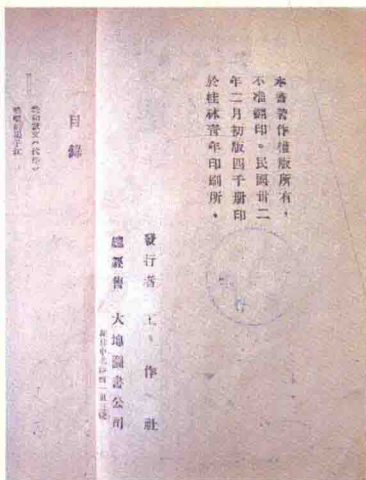 本書著作權版所有，
不准翻印。民國卅二
年二月初版四千册印
於桂林青年印刷所。
發行者 工作社
總經售 大地圖書公司
目錄